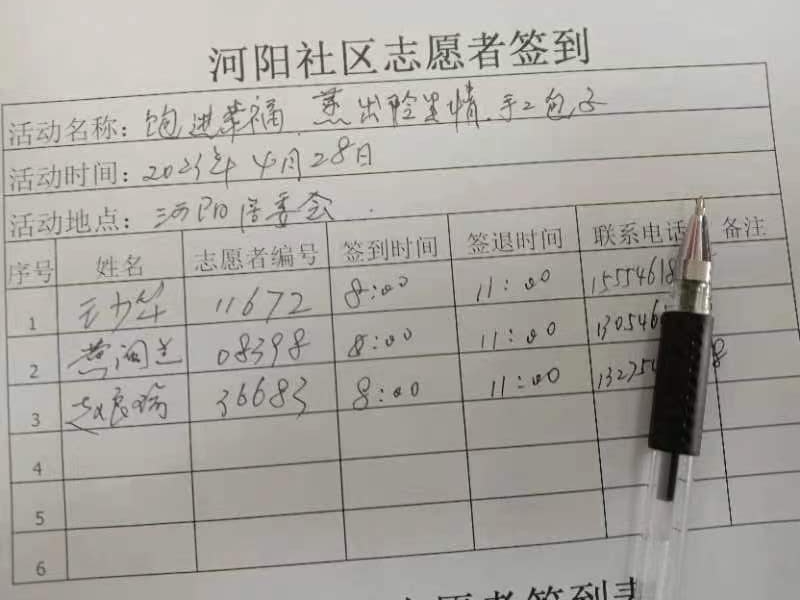 河阳社区志愿者签到
活动名称：饱进幸福、蒸出脸坐情、手工包子
活动时间：2023年4月28日
活动地点：河阳居委会
序号 姓名 志愿者编号 签到时间 签退时间 联系电话 备注
1 11672 8:00 11:00 15554618
2 燕润兰 08398 8:00 11:00 130546
3 36683 8:00 11:00 13275 8
4
5
6
志愿者签到表